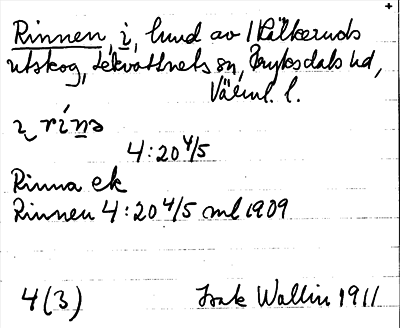 Rinnen, i, lund av Hälkeruds
utskog, Lekvattnets sn, Fryksdals hd,
Värml. l.
i rínə
4:20 4/5
Rinna ek
Rinnen 4:20 4/5 ml 1909
4(3) Isak Wallin 1911